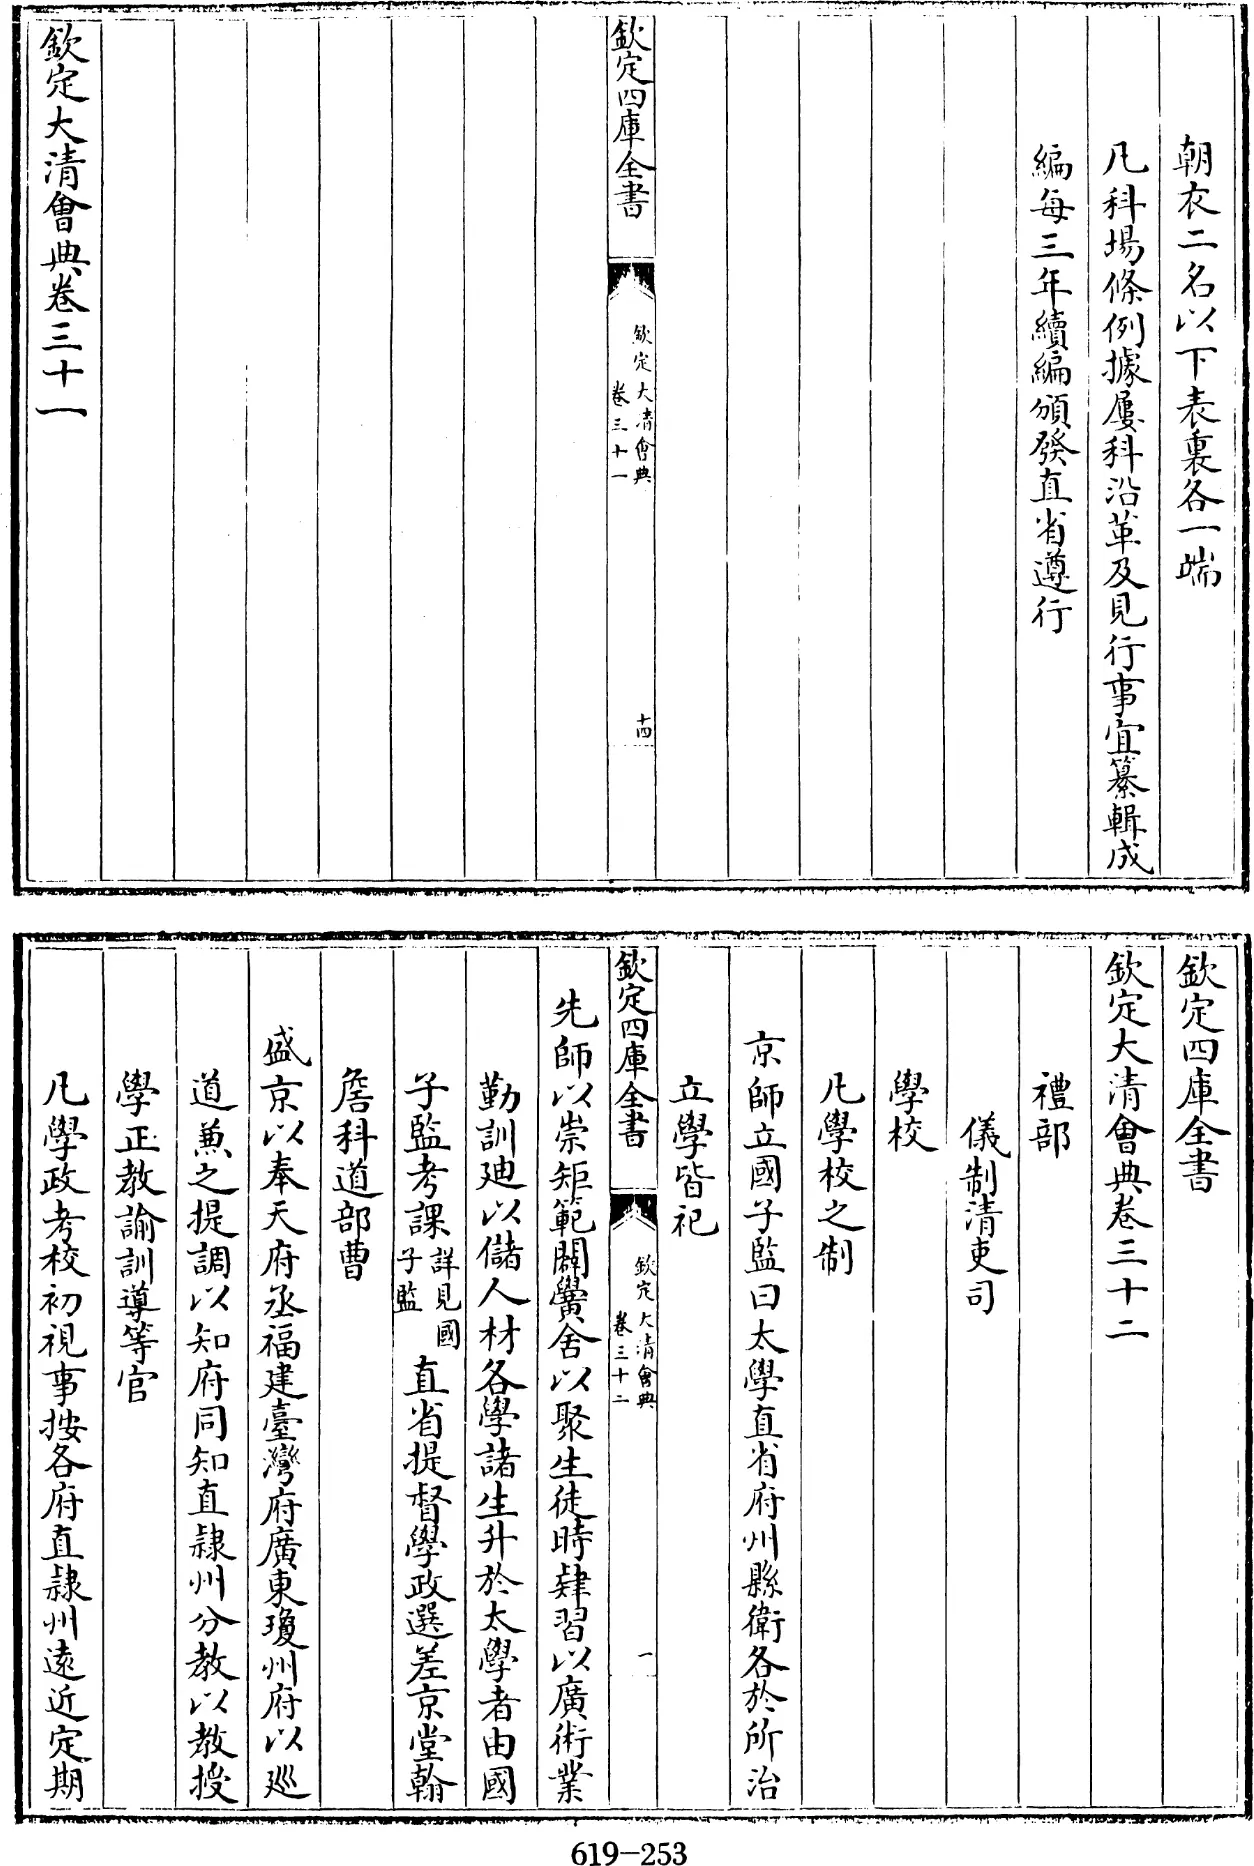 朝衣二名以下表裏各一端
凡科場條例據屢科沿革及見行事宜纂輯成
編每三年續編頒發直省遵行
欽定四庫全書
欽定大清會典
卷三十一
十四
欽定大清會典卷三十一
欽定四庫全書
欽定大清會典卷三十二
禮部
儀制清吏司
學校
凡學校之制
京師立國子監曰太學直省府州縣衛各於所治
立學皆祀
欽定四庫全書
欽定大清會典
卷三十二
一
先師以崇矩範闢黌舍以聚生徒時肄習以廣術業
勤訓廸以儲人材各學諸生升於太學者由國
子監考課詳見國子監直省提督學政選差京堂翰
詹科道部曹
盛京以奉天府丞福建臺灣府廣東瓊州府以廵
道兼之提調以知府同知直隷州分教以教授
學正教諭訓導等官
凡學政考校初視事按各府直隷州遠近定期
619-253